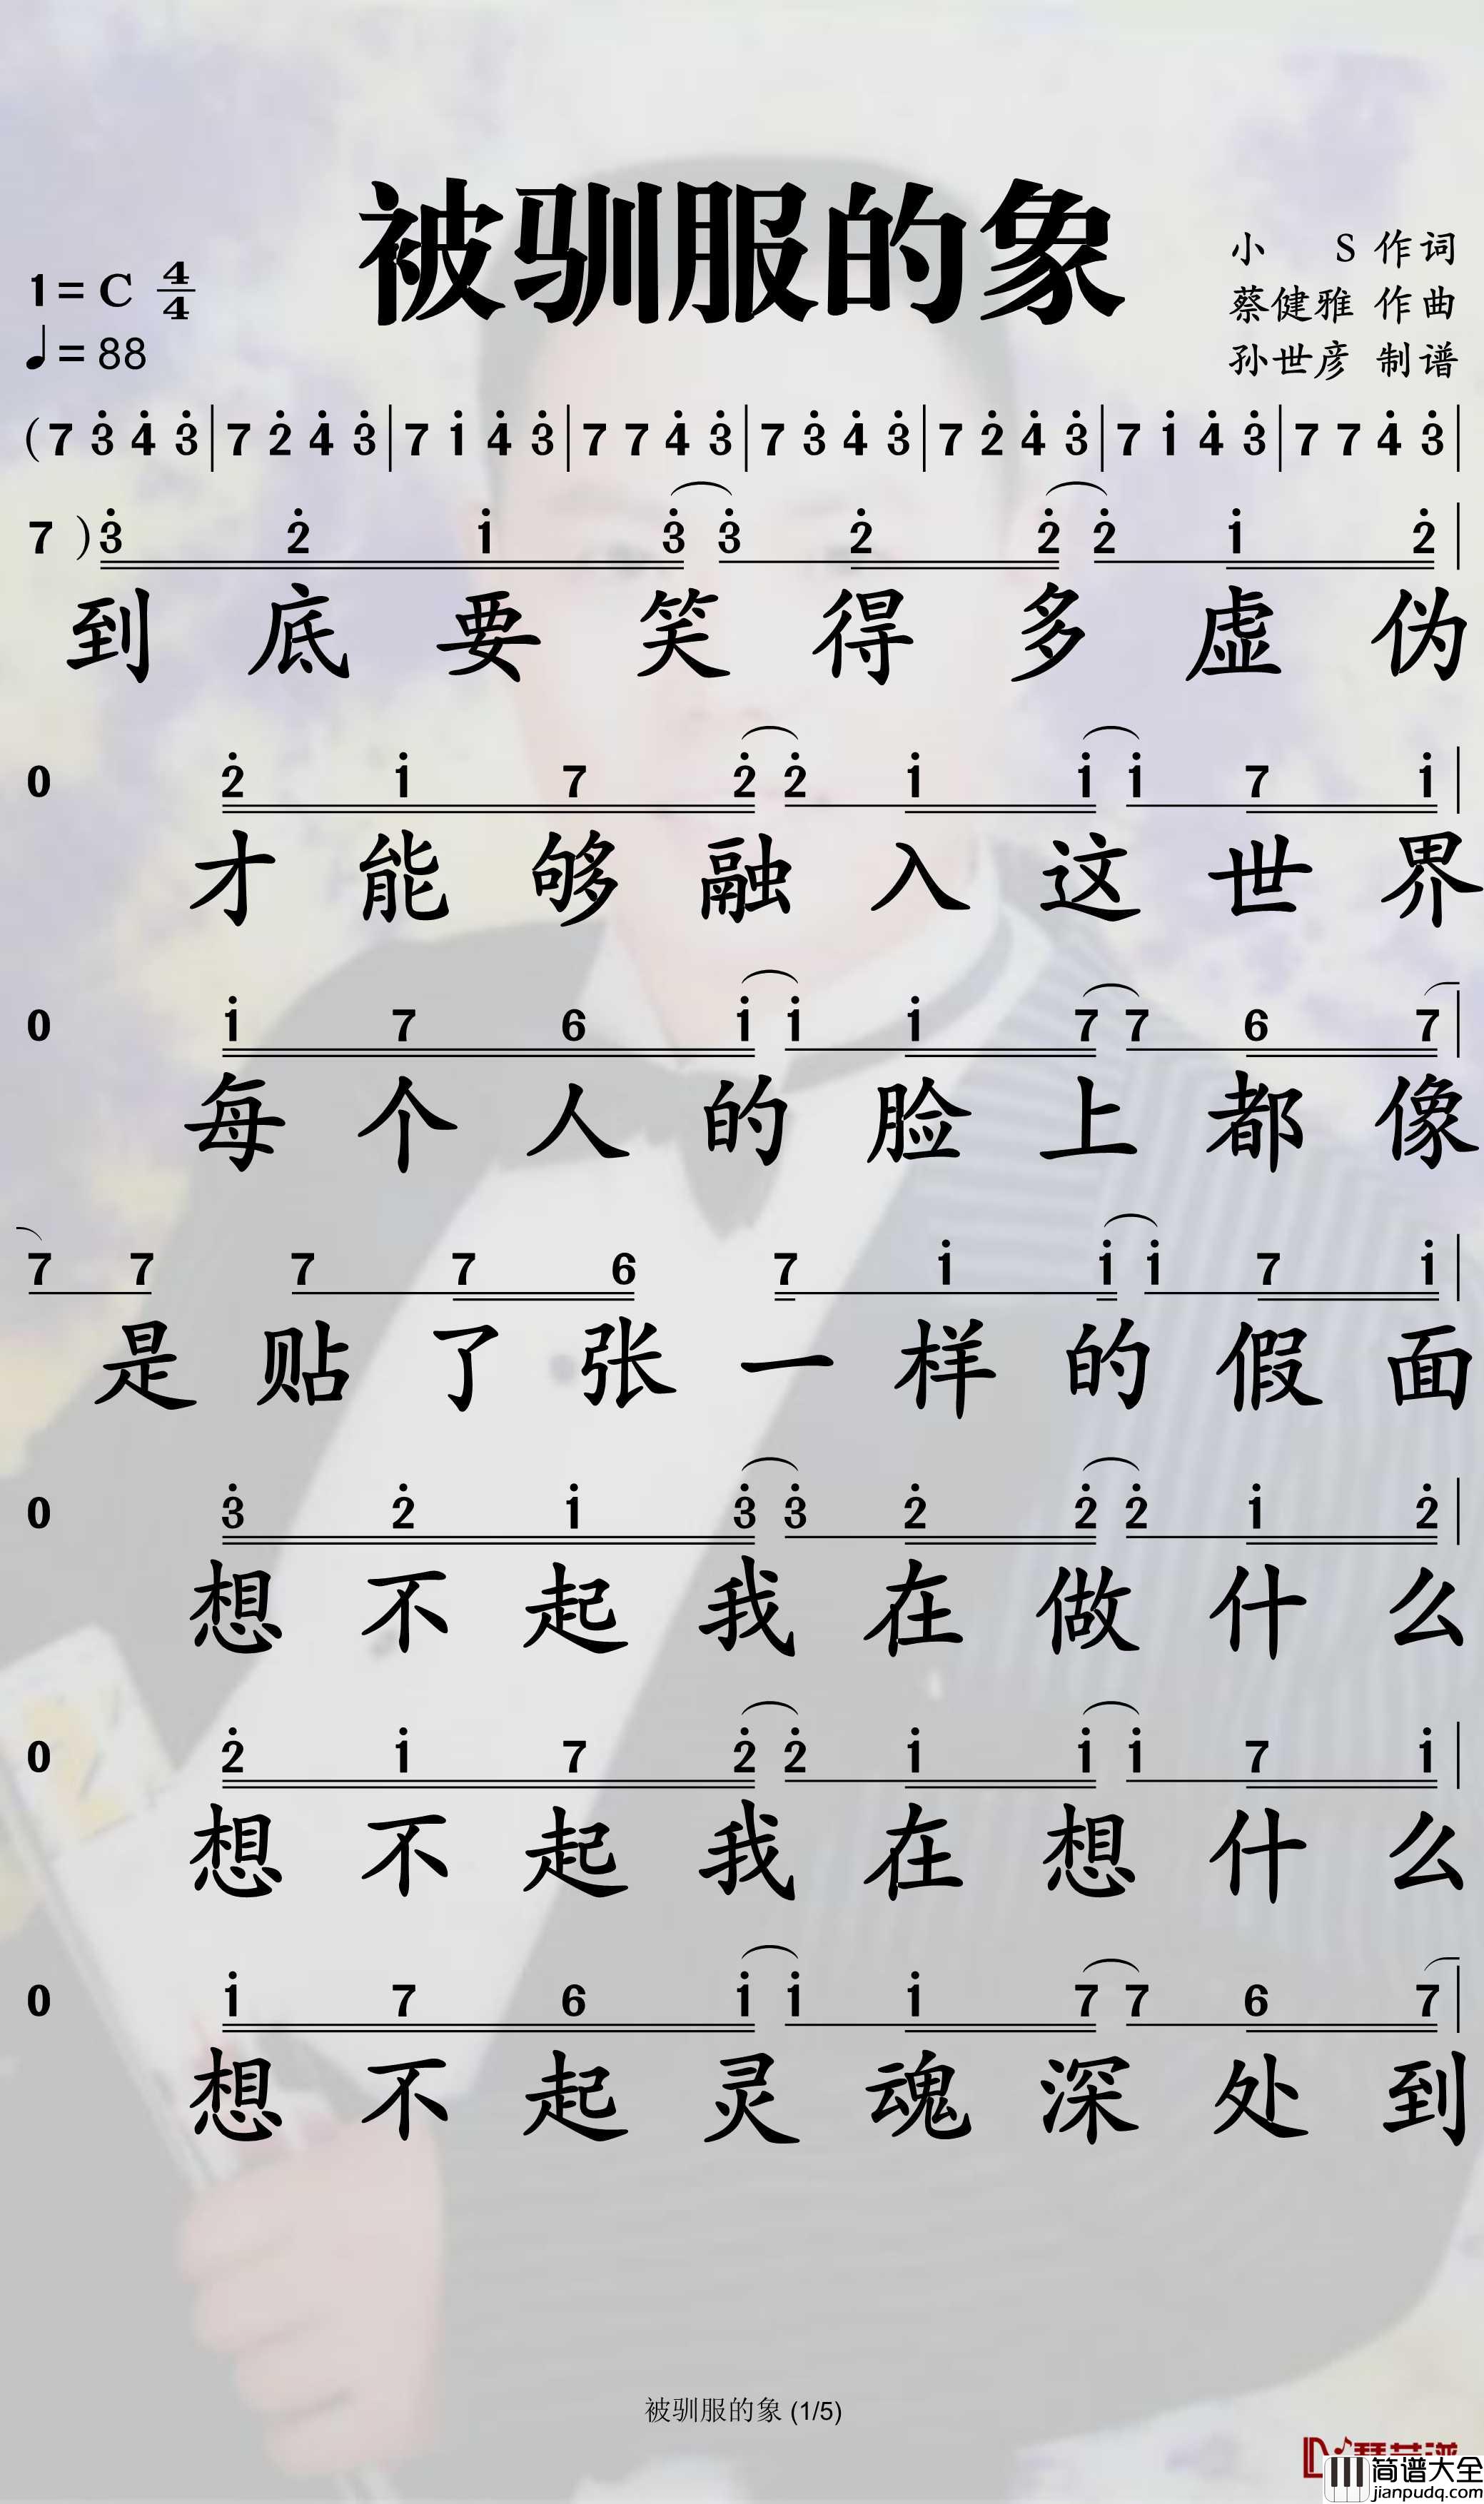 被驯服的象
小 S 作词
1=C 4/4
蔡健雅 作曲
♩=88
孙世彦 制谱
(7 3̇ 4̇ 3̇ | 7 2̇ 4̇ 3̇ | 7 1̇ 4̇ 3̇ | 7 7 4̇ 3̇ | 7 3̇ 4̇ 3̇ | 7 2̇ 4̇ 3̇ | 7 1̇ 4̇ 3̇ | 7 7 4̇ 3̇ |
7 ) 3̇ 2̇ 1̇ 3̇ 3̇ 2̇ 2̇ 2̇ 1̇ 2̇ |
到 底 要 笑 得 多 虚 伪
0 2̇ 1̇ 7 2̇ 2̇ 1̇ 1̇ 1̇ 7 1̇ |
才 能 够 融 入 这 世 界
0 1̇ 7 6 1̇ 1̇ 1̇ 7 7 6 7 |
每 个 人 的 脸 上 都 像
7 7 7 7 6 7 1̇ 1̇ 1̇ 7 1̇ |
是 贴 了 张 一 样 的 假 面
0 3̇ 2̇ 1̇ 3̇ 3̇ 2̇ 2̇ 2̇ 1̇ 2̇ |
想 不 起 我 在 做 什 么
0 2̇ 1̇ 7 2̇ 2̇ 1̇ 1̇ 1̇ 7 1̇ |
想 不 起 我 在 想 什 么
0 1̇ 7 6 1̇ 1̇ 1̇ 7 7 6 7 |
想 不 起 灵 魂 深 处 到
被驯服的象 (1/5)
简谱大全
jianpudq.com